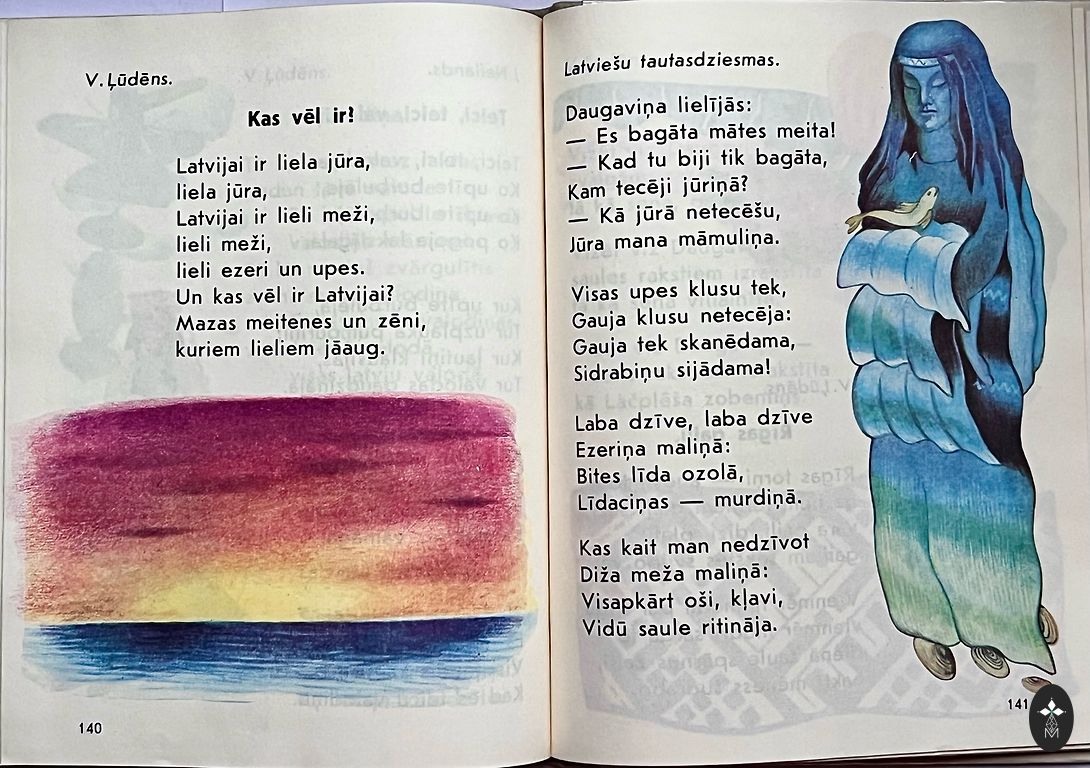 V. Ļūdēns.
Kas vēl ir?
Latvijai ir liela jūra,
liela jūra,
Latvijai ir lieli meži,
lieli meži,
lieli ezeri un upes.
Un kas vēl ir Latvijai?
Mazas meitenes un zēni,
kuriem lieliem jāaug.
140
Latviešu tautasdziesmas.
Daugaviņa lielījās:
— Es bagāta mātes meita!
— Kad tu biji tik bagāta,
Kam tecēji jūriņā?
— Kā jūrā netecēšu,
Jūra mana māmuliņa.
Visas upes klusu tek,
Gauja klusu netecēja:
Gauja tek skanēdama,
Sidrabiņu sijādama!
Laba dzīve, laba dzīve
Ezeriņa maliņā:
Bites līda ozolā,
Līdaciņas — murdiņā.
Kas kait man nedzīvot
Diža meža maliņā:
Visapkārt oši, kļavi,
Vidū saule ritināja.
141
M